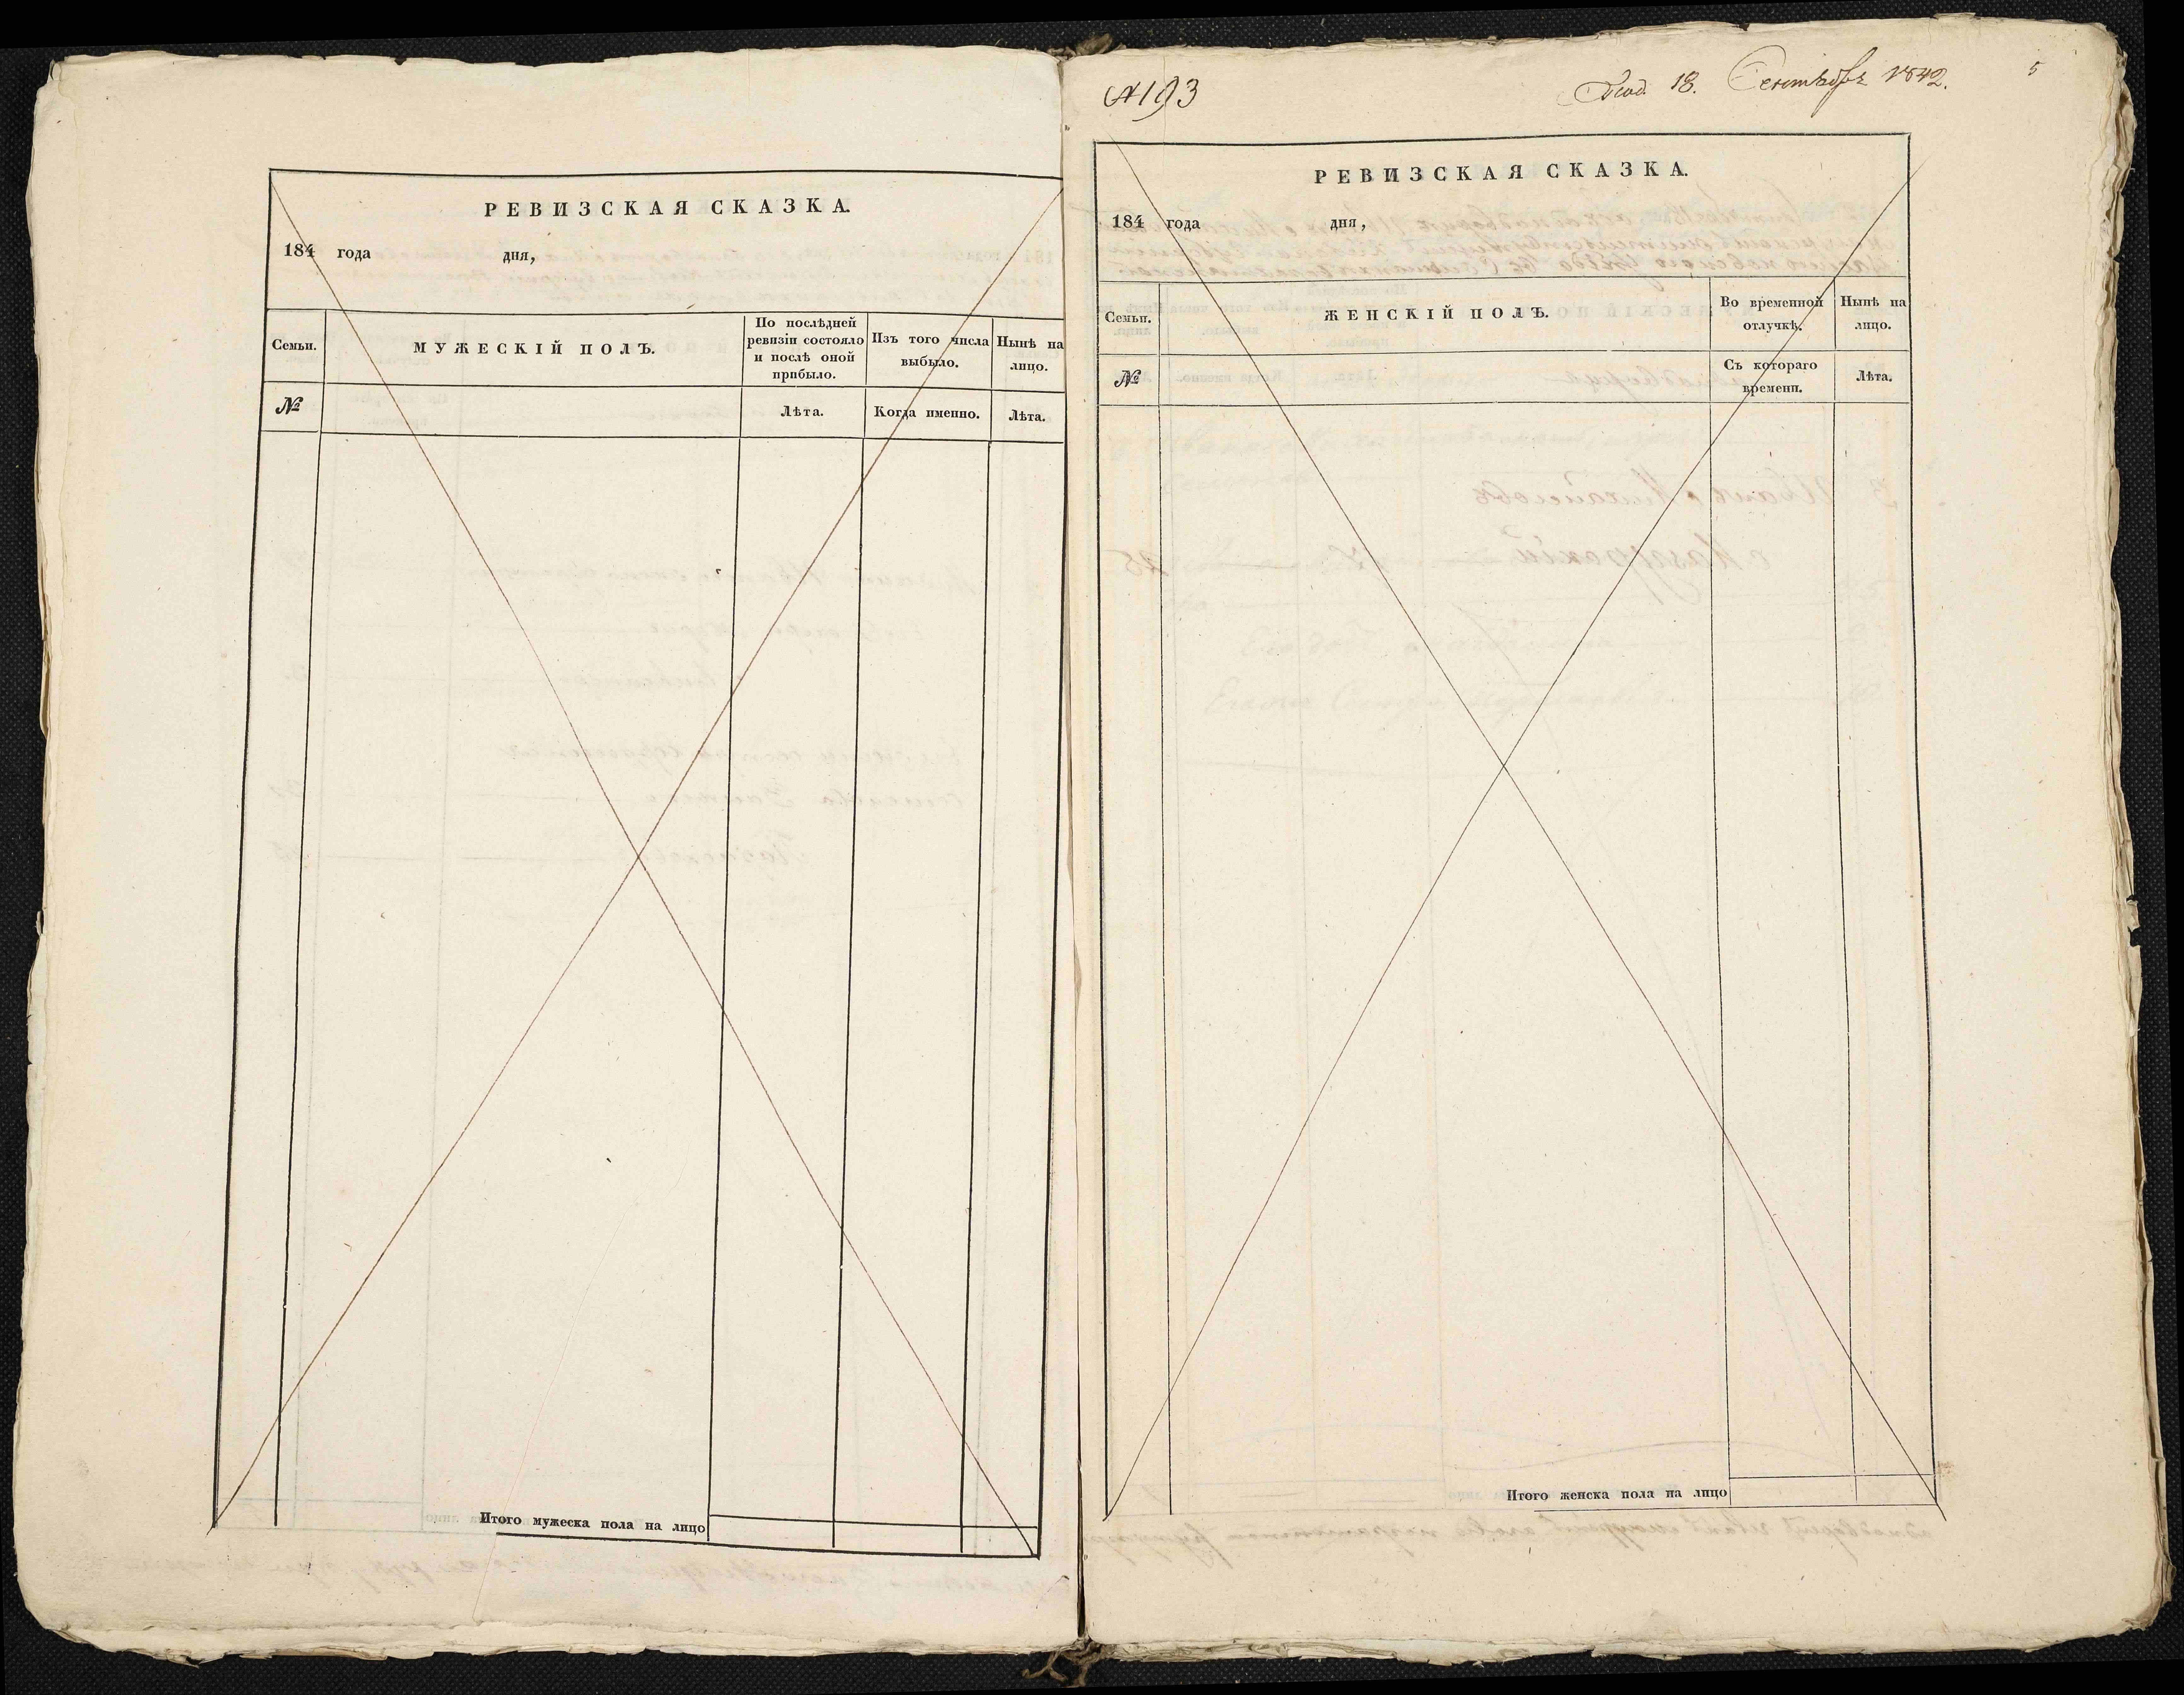 РЕВИЗСКАЯ СКАЗКА.
184 года дня,
Семьи.
МУЖЕСКІЙ ПОЛЪ.
По послѣдней
ревизіи состояло
и послѣ оной
прибыло.
Изъ того числа
выбыло.
Нынѣ на
лицо.
№
Лѣта.
Когда именно.
Лѣта.
Итого мужеска пола на лицо
№ 193
18. Сентября 1842.
5
РЕВИЗСКАЯ СКАЗКА.
184 года дня,
Семьи.
ЖЕНСКІЙ ПОЛЪ.
Во временной
отлучкѣ.
Нынѣ на
лицо.
№
Съ котораго
времени.
Лѣта.
Итого женска пола на лицо